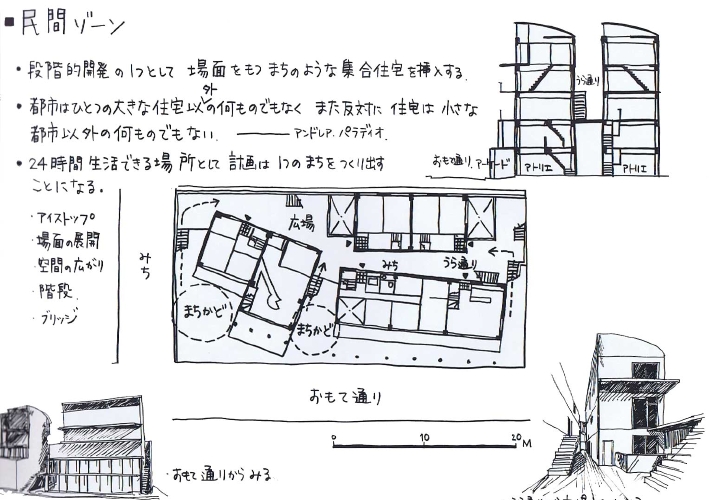 ■民間ゾーン
・段階的開発の1つとして 場面をもつまちのような集合住宅を挿入する.
・都市はひとつの大きな住宅以外の何ものでもなく また反対に 住宅は小さな
都市以外の何ものでもない. ―― アンドレア. パラディオ.
・24時間生活できる場所として 計画は1つのまちをつくり出す
ことになる。
・アイストップ
・場面の展開
・空間の広がり
・階段
・ブリッジ
うら通り
おもて通り. アーケード
アトリエ
アトリエ
広場
みち
みち
うら通り
まちかど
まちかど
おもて通り
0 10 20M
・おもて通りからみる